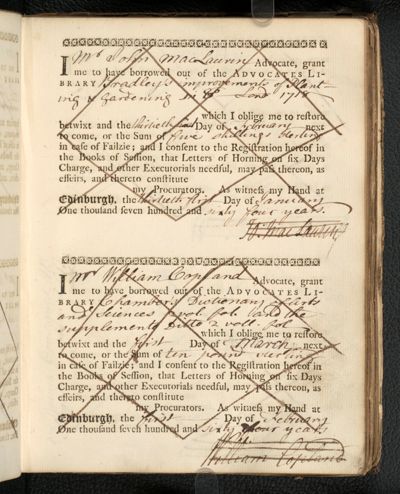 I Mr John MacLaurin Advocate, grant
me to have borrowed out of the ADVOCATES LI-
BRARY Bradley's improvements of Plant-
ing & Gardening in 8º Lond 1718
which I oblige me to restore
betwixt and the Day of February next
to come, or the Sum of five shillings Sterling
in case of Failzie; and I consent to the Registration hereof in
the Books of Session, that Letters of Horning on six Days
Charge, and other Executorials needful, may pass thereon, as
effeirs, and thereto constitute
my Procurators. As witness my Hand at
Edinburgh, the thirtieth first Day of January
One thousand seven hundred and sixty four years.
Jo. MacLaurin
I Mr William Copland Advocate, grant
me to have borrowed out of the ADVOCATES LI-
BRARY Chambers Dictionary of Arts
and Sciences 2 vol. fol. and the
supplement ditto 2 voll. fol.
which I oblige me to restore
betwixt and the first Day of March next
to come, or the Sum of ten pound sterling
in case of Failzie; and I consent to the Registration hereof in
the Books of Session, that Letters of Horning on six Days
Charge, and other Executorials needful, may pass thereon, as
effeirs, and thereto constitute
my Procurators. As witness my Hand at
Edinburgh, the first Day of February
One thousand seven hundred and sixty four years
William Copland